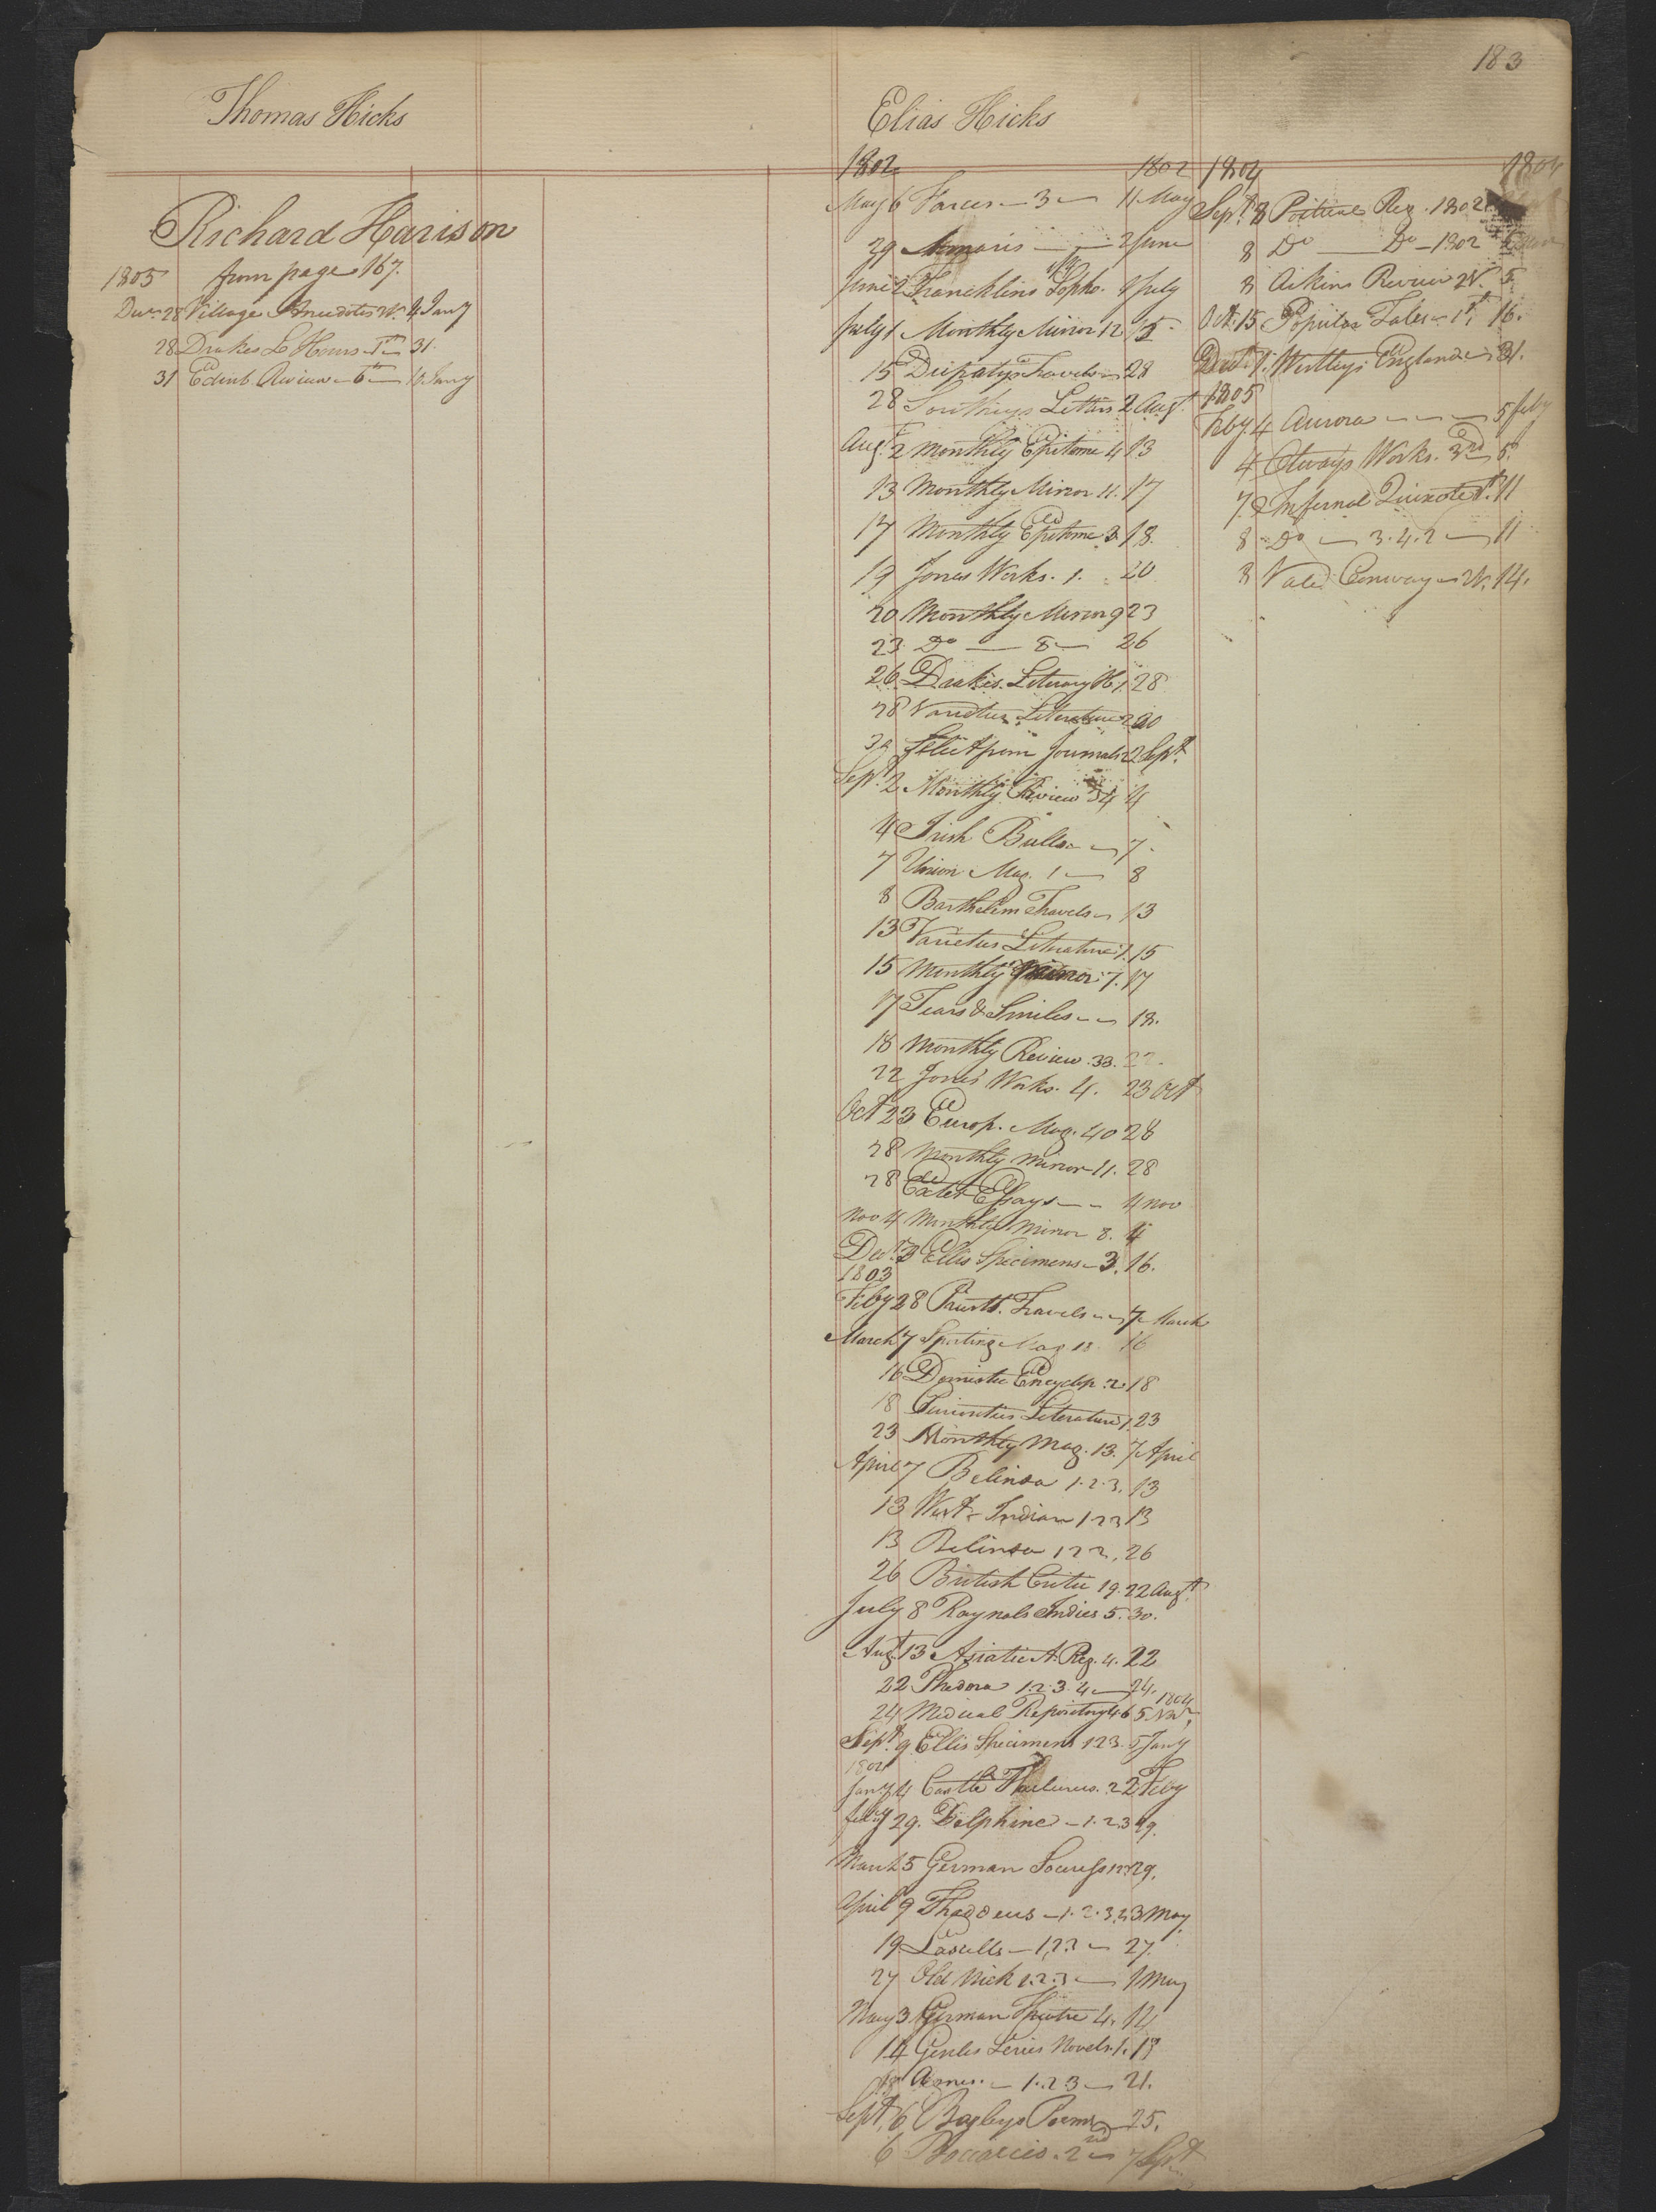 183
Thomas Hicks
Richard Harison
from page 167.
1805
Decr 28 Village Anecdotes W. 4 Jany
28 Drakes L Hours 1st 31.
31 Edinb. Review 6th 10 Jany
Elias Hicks
1802 1802
May 6 Farces 3 11 May
29 2 June
June 2 Francklins Sopho. 1 July
July 1 Monthly Mirror 12 15
15 Dupatys Travels 28
28 Southeys Letters 2 Augt
Augt 2 Monthly Epitome 4 13
13 Monthly Mirror 11. 17
17 Monthly Epitome 3. 18.
19 Jones Works. 1. 20
20 Monthly Mirror 9 23
23 Do 8 26
26 Drakes Literary H 1. 28
28 Varieties Literature 2 30
30 Select from Journals 2 2 Sept.
Sept. 2 Monthly Review 34 4
4 Irish Bulls 7
7 Union Mag. 1 8
8 Barthelim Travels 13
13 Varieties Literature 1. 15
15 Monthly Mirror 7. 17
17 Tears & Smiles 18.
18 Monthly Review 33. 22.
22 Jones Works. 4. 23 Oct
Oct 23 Europ. Mag. 40 28
28 Monthly Mirror 11. 28
28 Essays 4 Nov
Nov 4 Monthly Mirror 8. 4
Decr 3 Ellis Specimens 3. 16.
1803
Feby 28 Travels 7 March
March 7 Sporting Mag 18 16
16 Domestic Encyclop. 2 18
18 Curiosities Literature 1. 23
23 Monthly Mag. 13. 7 April
April 7 Belinda 1.2.3. 13
13 West Indian 1 2 3 13
13 Belinda 1 2 2. 26
26 British Critic 19. 22 Augt
July 8 Raynals Indies 5. 30.
Augt 13 Asiatic A. Reg. 4. 22
22 Phedora 1.2.3.4 24.
24 Medical Repository 4.6 5 Novr
1804
Sept. 9 Ellis Specimens 1 2 3. 5 Jany
1804
Jany 4 Castle 2 2 Feby
Feby 29. Delphine 1.2.3 29.
March 5 German 29.
April 9 Thaddeus 1.2.3.4 3 May
19 Lascells 1.2.3 27.
27 Old Nick 1.2.3 1 May
May 3 German Theatre 4. 14
14 Genlis Series Novels. 1. 18
18 1.2.3 21.
Sept. 6 Bayleys Poems 25.
6 Boccacio. 2nd 7 Sept
1804 1804
Sept. 8 Political Reg. 1802
8 Do Do 1802
8 Aikins Review 2V. 5
Oct. 15 Popular Tales 1st. 16.
Decr 1. England 31.
1805
Feby 4 Aurora 5 feby
4 Otways Works. 3rd 5.
7 Infernal Quixote 1st. 11
8 Do 3.4.2 11
8 Vale Conway 2V. 14.